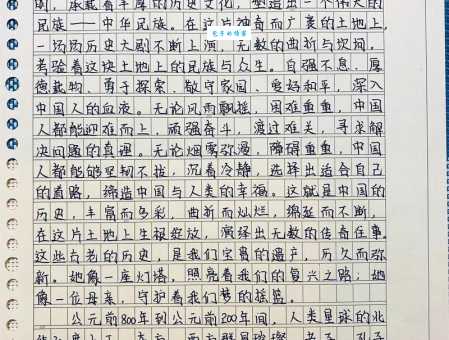 民族——中华民族。在这片神奇而广袤的土地上,
一场场历史大剧不断上演,无数的曲折与坎坷,
考验着这块土地上的民族与众生。自强不息、厚
德载物、勇于探索、敦守家国、爱好和平,深入
中国人的血液。无论风雨飘摇,困难重重,中国
人都能迎难而上,顽强奋斗,渡过难关,寻求解
决问题的真理。无论烟雾弥漫,障碍重重,中国
人都能够坚韧不拔,沉着冷静,选择出适合自己
的道路,缔造中国与人类的幸福。这就是中国的
历史,丰富而多彩,曲折而灿烂,绵延而不断,
在这片土地上生根绽放,演绎出无数的传奇往事。
这些古老的历史,是我们宝贵的遗产,历久而弥
新。她像一座灯塔,照亮着我们的复兴之路;她
像一位母亲,守护着我们梦的摇篮。
公元前800年到公元前200年间,人类星球的北